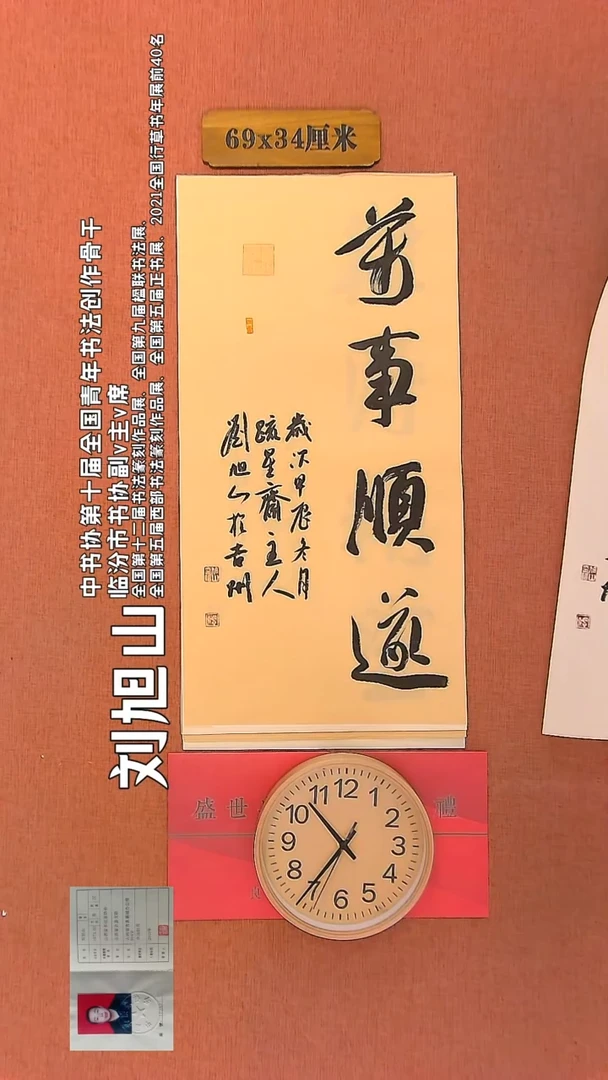 69x34厘米
萬事順遂
歲次甲辰冬月
疏星齋主人
劉旭山於古州
刘旭山
中书协第十届全国青年书法创作骨干
临汾市书协副v主v席
全国第十二届书法篆刻作品展、全国第九届楹联书法展、
全国第五届西部书法篆刻作品展、全国第五届正书展、2021全国行草书年展前40名
盛世
禮
12
1
2
3
4
5
6
7
8
9
10
11